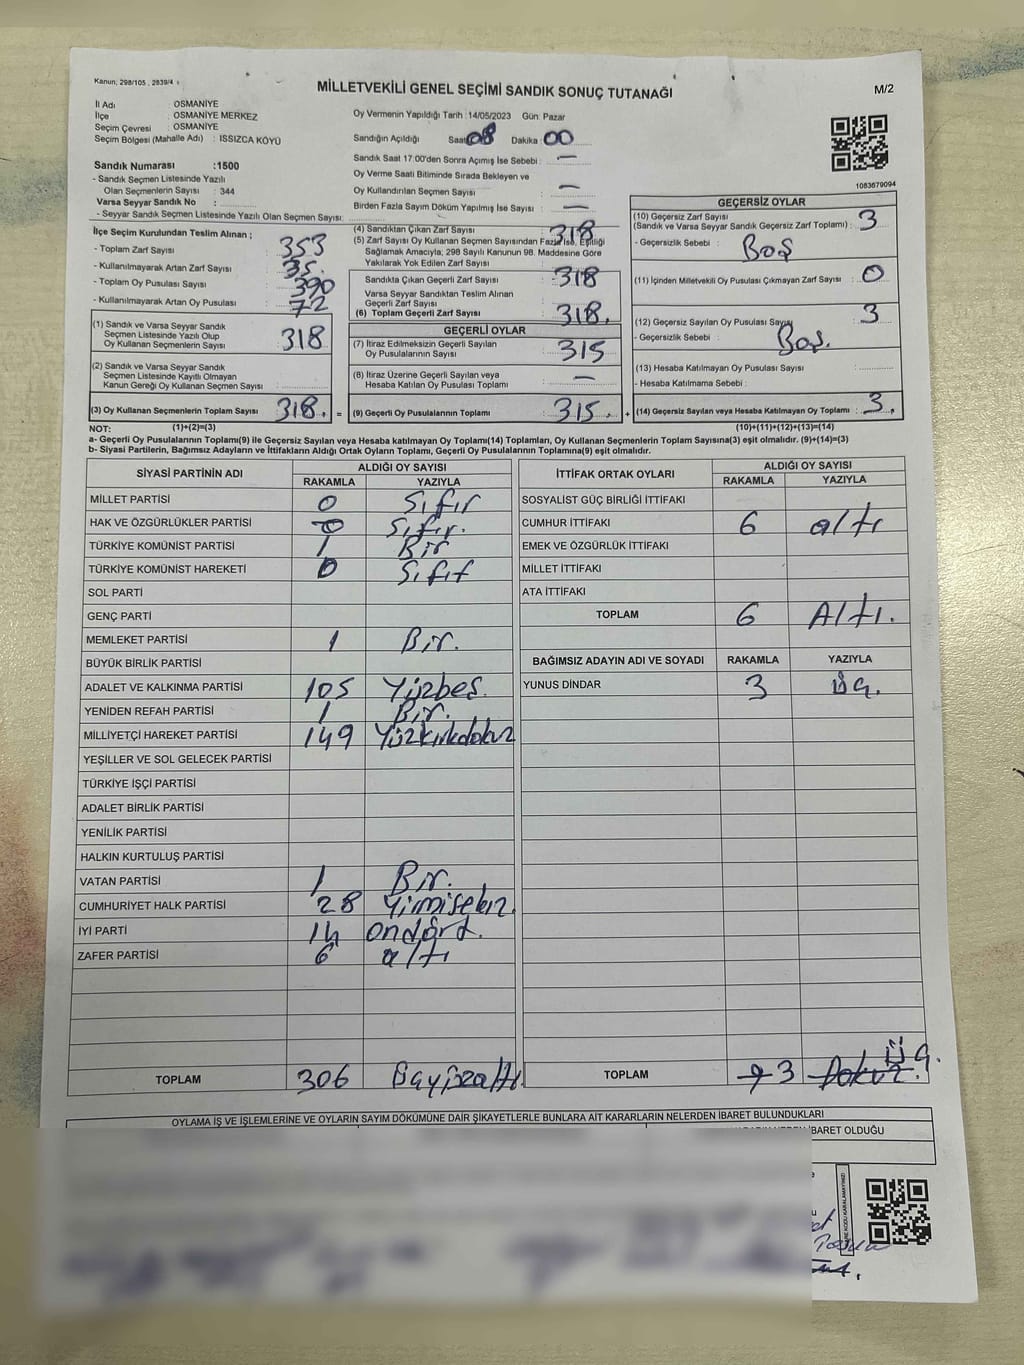 Kanun: 298/105 , 2839/4
MİLLETVEKİLİ GENEL SEÇİMİ SANDIK SONUÇ TUTANAĞI
M/2
İl Adı : OSMANİYE
İlçe : OSMANİYE MERKEZ
Seçim Çevresi : OSMANİYE
Seçim Bölgesi (Mahalle Adı) : ISSIZCA KÖYÜ
Sandık Numarası :1500
- Sandık Seçmen Listesinde Yazılı
Olan Seçmenlerin Sayısı : 344
Varsa Seyyar Sandık No :
- Seyyar Sandık Seçmen Listesinde Yazılı Olan Seçmen Sayısı:
Oy Vermenin Yapıldığı Tarih :14/05/2023 Gün: Pazar
Sandığın Açıldığı Saat 08 Dakika 00
Sandık Saat 17:00'den Sonra Açımış İse Sebebi : —
Oy Verme Saati Bitiminde Sırada Bekleyen ve
Oy Kullandırılan Seçmen Sayısı —
Birden Fazla Sayım Döküm Yapılmış İse Sayısı : —
1083679094
İlçe Seçim Kurulundan Teslim Alınan ;
- Toplam Zarf Sayısı 353
- Kullanılmayarak Artan Zarf Sayısı 35.
- Toplam Oy Pusulası Sayısı 390
- Kullanılmayarak Artan Oy Pusulası 72
(1) Sandık ve Varsa Seyyar Sandık
Seçmen Listesinde Yazılı Olup
Oy Kullanan Seçmenlerin Sayısı : 318
(2) Sandık ve Varsa Seyyar Sandık
Seçmen Listesinde Kayıtlı Olmayan
Kanun Gereği Oy Kullanan Seçmen Sayısı :
(3) Oy Kullanan Seçmenlerin Toplam Sayısı 318. =
(4) Sandıktan Çıkan Zarf Sayısı 318
(5) Zarf Sayısı Oy Kullanan Seçmen Sayısından Fazla İse, Eşitliği
Sağlamak Amacıyla; 298 Sayılı Kanunun 98. Maddesine Göre
Yakılarak Yok Edilen Zarf Sayısı
Sandıkta Çıkan Geçerli Zarf Sayısı 318
Varsa Seyyar Sandıktan Teslim Alınan
Geçerli Zarf Sayısı
(6) Toplam Geçerli Zarf Sayısı 318.
GEÇERLİ OYLAR
(7) İtiraz Edilmeksizin Geçerli Sayılan
Oy Pusulalarının Sayısı 315
(8) İtiraz Üzerine Geçerli Sayılan veya
Hesaba Katılan Oy Pusulası Toplamı —
(9) Geçerli Oy Pusulalarının Toplamı 315. +
GEÇERSİZ OYLAR
(10) Geçersiz Zarf Sayısı
(Sandık ve Varsa Seyyar Sandık Geçersiz Zarf Toplamı) : 3
- Geçersizlik Sebebi : Boş
(11) İçinden Milletvekili Oy Pusulası Çıkmayan Zarf Sayısı : 0
(12) Geçersiz Sayılan Oy Pusulası Sayısı 3
- Geçersizlik Sebebi : Boş.
(13) Hesaba Katılmayan Oy Pusulası Sayısı
- Hesaba Katılmama Sebebi :
(14) Geçersiz Sayılan veya Hesaba Katılmayan Oy Toplamı : 3.
NOT: (1)+(2)=(3) (10)+(11)+(12)+(13)=(14)
a- Geçerli Oy Pusulalarının Toplamı(9) ile Geçersiz Sayılan veya Hesaba katılmayan Oy Toplamı(14) Toplamları, Oy Kullanan Seçmenlerin Toplam Sayısına(3) eşit olmalıdır. (9)+(14)=(3)
b- Siyasi Partilerin, Bağımsız Adayların ve İttifakların Aldığı Ortak Oyların Toplamı, Geçerli Oy Pusulalarının Toplamına(9) eşit olmalıdır.
SİYASİ PARTİNİN ADI ALDIĞI OY SAYISI
RAKAMLA YAZIYLA
MİLLET PARTİSİ 0 Sıfır
HAK VE ÖZGÜRLÜKLER PARTİSİ 0 Sıfır.
TÜRKİYE KOMÜNİST PARTİSİ 1 Bir
TÜRKİYE KOMÜNİST HAREKETİ 0 Sıfır
SOL PARTİ
GENÇ PARTİ
MEMLEKET PARTİSİ 1 Bir.
BÜYÜK BİRLİK PARTİSİ
ADALET VE KALKINMA PARTİSİ 105 Yüzbeş.
YENİDEN REFAH PARTİSİ 1 Bir.
MİLLİYETÇİ HAREKET PARTİSİ 149 Yüzkırkdokuz
YEŞİLLER VE SOL GELECEK PARTİSİ
TÜRKİYE İŞÇİ PARTİSİ
ADALET BİRLİK PARTİSİ
YENİLİK PARTİSİ
HALKIN KURTULUŞ PARTİSİ
VATAN PARTİSİ 1 Bir.
CUMHURİYET HALK PARTİSİ 28 Yirmisekiz.
İYİ PARTİ 14 ondört.
ZAFER PARTİSİ 6 altı
TOPLAM 306
İTTİFAK ORTAK OYLARI ALDIĞI OY SAYISI
RAKAMLA YAZIYLA
SOSYALİST GÜÇ BİRLİĞİ İTTİFAKI
CUMHUR İTTİFAKI 6 altı
EMEK VE ÖZGÜRLÜK İTTİFAKI
MİLLET İTTİFAKI
ATA İTTİFAKI
TOPLAM 6 Altı.
BAĞIMSIZ ADAYIN ADI VE SOYADI RAKAMLA YAZIYLA
YUNUS DİNDAR 3 üç.
TOPLAM 9 3 Dokuz. Üç.
OYLAMA İŞ VE İŞLEMLERİNE VE OYLARIN SAYIM DÖKÜMÜNE DAİR ŞİKAYETLERLE BUNLARA AİT KARARLARIN NELERDEN İBARET BULUNDUKLARI
İBARET OLDUĞU